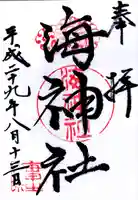 奉拝
海神社
平成二十九年八月十三日